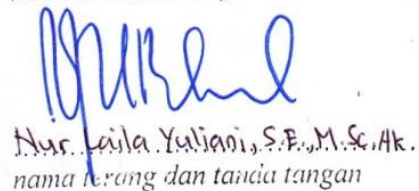 Nur Laila Yuliani, S.E., M.Sc, Ak.
nama terang dan tanda tangan